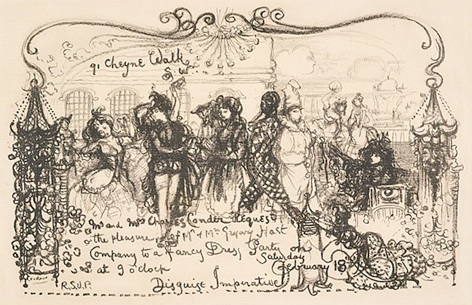 91 Cheyne Walk
S.W.
Mr and Mrs Charles Conder request
the pleasure of Mr & Mrs Hart
Company to a Fancy Dress Party on
Saturday
February 18
at 9 o'clock
R.S.V.P. Disguise Imperative